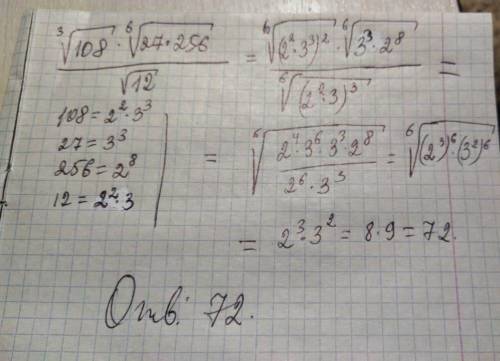 ∛108 · ⁶√(27·256) / √12 = ⁶√((2²·3³)²) · ⁶√(3³·2⁸) / ⁶√((2²·3)³) =
108 = 2²·3³
27 = 3³
256 = 2⁸
12 = 2²·3
= ⁶√(2⁴·3⁶·3³·2⁸ / 2⁶·3³) = ⁶√((2³)⁶·(3²)⁶)
= 2³·3² = 8·9 = 72.
Отв: 72.